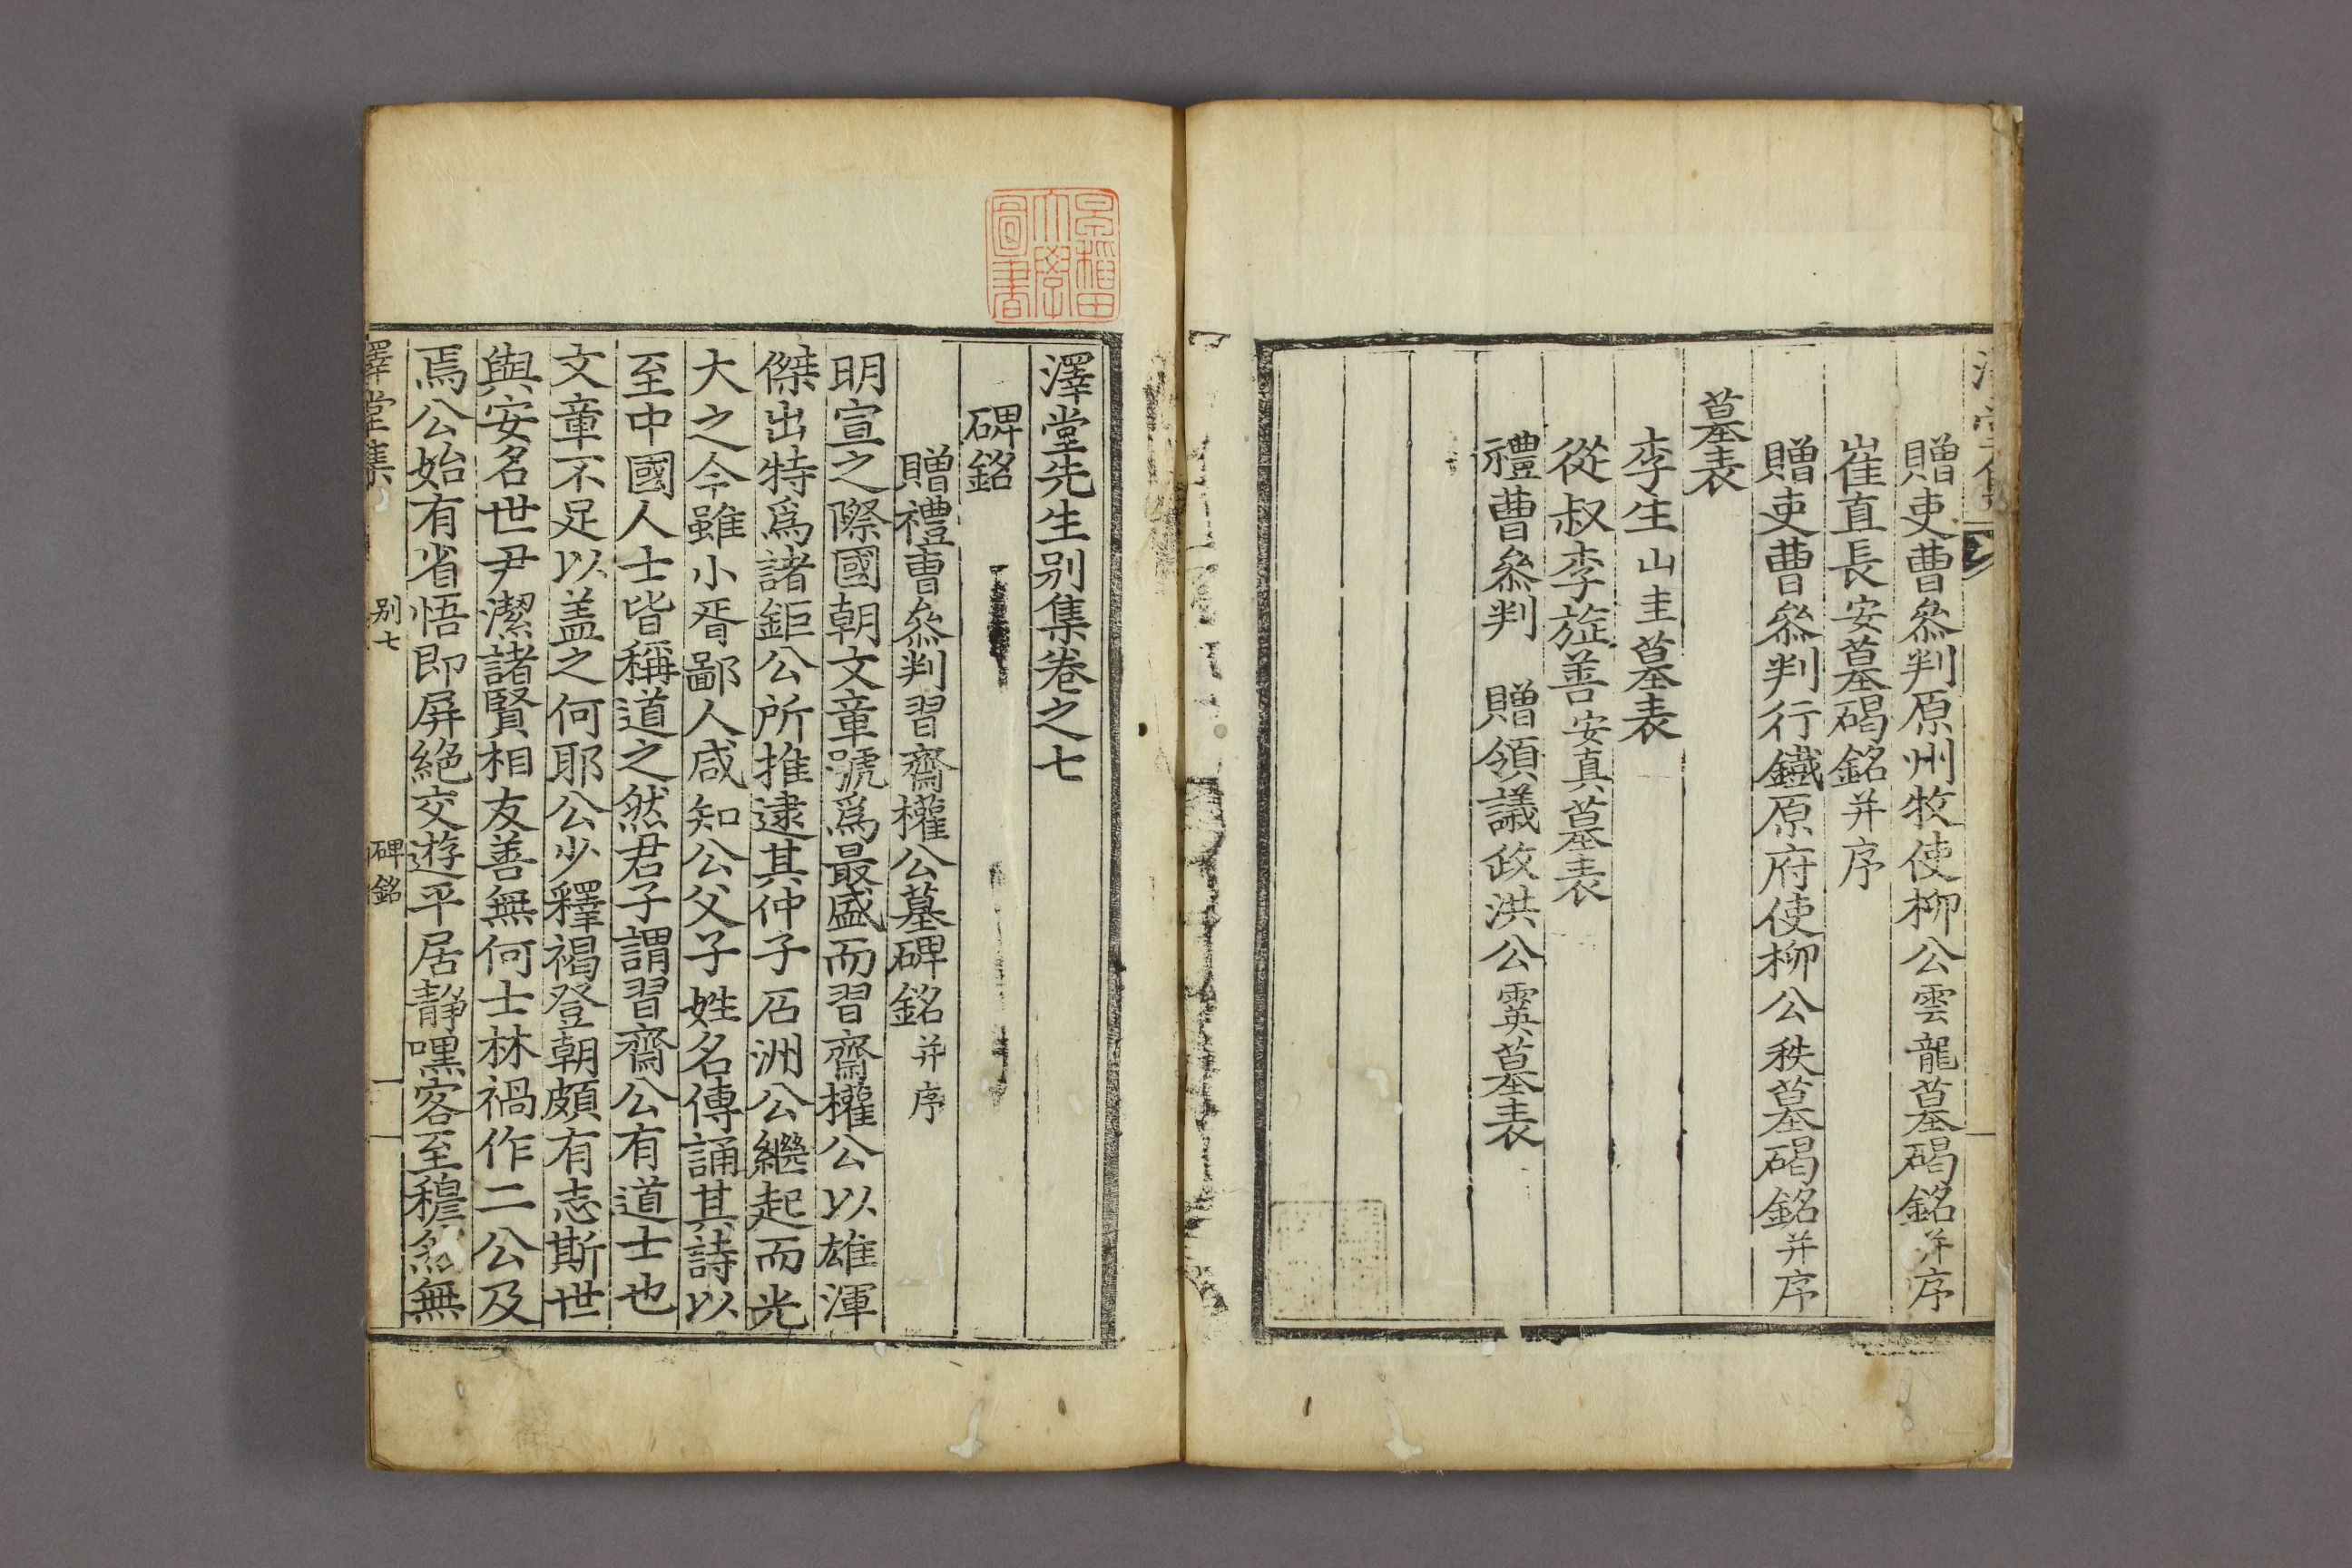 贈吏曹叅判原州牧使柳公雲龍墓碣銘并序
崔直長安墓碣銘并序
贈吏曹叅判行鐵原府使柳公秩墓碣銘并序
墓表
李生山圭墓表
從叔李旌善安真墓表
禮曹叅判 贈領議政洪公霙墓表
早稲田
大學
圖書
澤堂先生别集卷之七
碑銘
贈禮曹叅判習齋權公墓碑銘并序
明宣之際國朝文章號爲最盛而習齋權公以雄渾
傑出特爲諸鉅公所推逮其仲子石洲公繼起而光
大之今雖小胥鄙人咸知公父子姓名傳誦其詩以
至中國人士皆稱道之然君子謂習齋公有道士也
文章不足以盖之何耶公少釋褐登朝頗有志斯世
與安名世尹潔諸賢相友善無何士林禍作二公及
焉公始有省悟即屏絶交遊平居静嘿客至穆然無
澤堂集 别七 碑銘 一